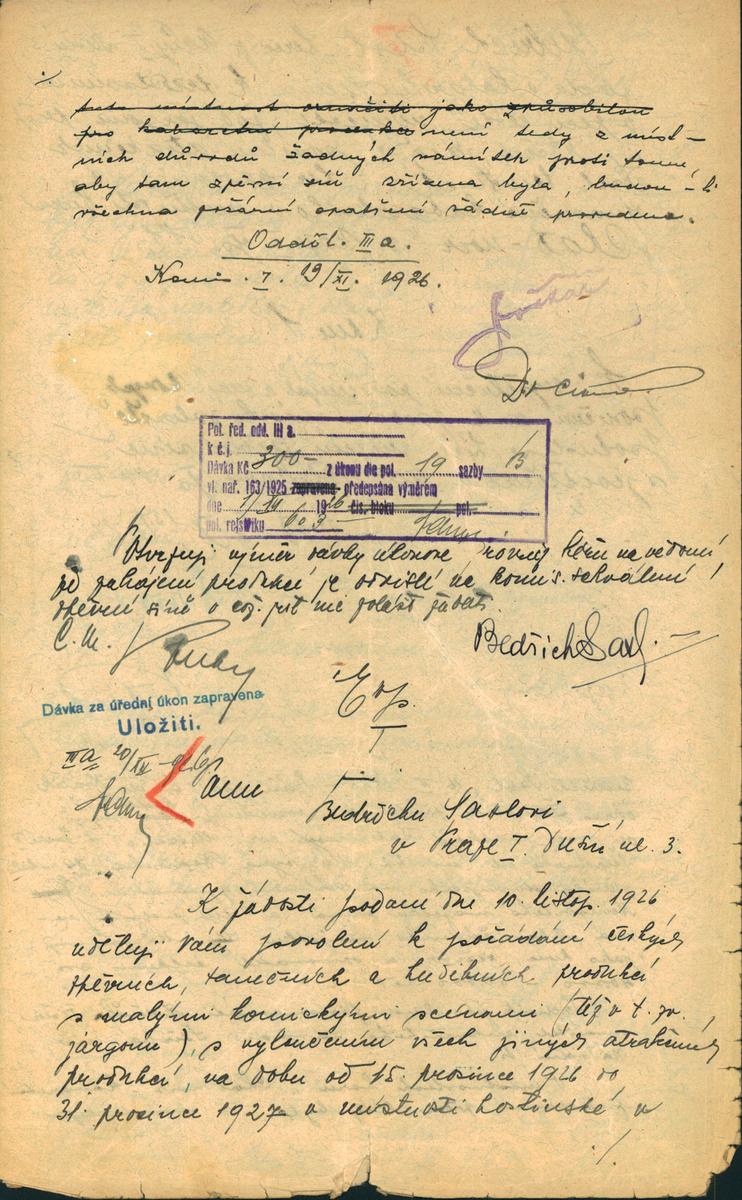 ./.
tuto místnost označiti jako způsobilou
pro kabaretní produkce není tedy z míst-
ních důvodů žádných námitek proti tomu,
aby tam zpěvní síň zřízena byla, budou-li
všechna požární opatření řádně provedena.
Odděl. III a.
Komis. I. 19/XI. 1926.
Pol. řed. odd. III a.
k č. j.
Dávka Kč 300- z úkonu dle pol. 19 sazby B
vl. nař. 163/1925 zapravena předepsána výměrem
dne 19 26 čís. bloku pol.
pol. rejstříku 603
Potvrzuji výměr dávky úkonové rovněž beru na vědomí
že zahájení produkcí je odvislé na komis. schválení
zpěvní síně o což jest mi požádat
Bedřich Saxl.
Dávka za úřední úkon zapravena
Uložiti.
IIIa 20/XII
Bedřichu Saxlovi
v Praze I. Dušní ul. 3.
K žádosti podané dne 10. listop. 1926
uděluji Vám povolení k pořádání českých
zpěvních, tanečních a hudebních produkcí
s malými komickými scénami (též v t. zv.
járgonu), s vyloučením všech jiných atrakčních
produkcí, na dobu od 15. prosince 1926 do
31. prosince 1927 v místnosti hostinské v
./.